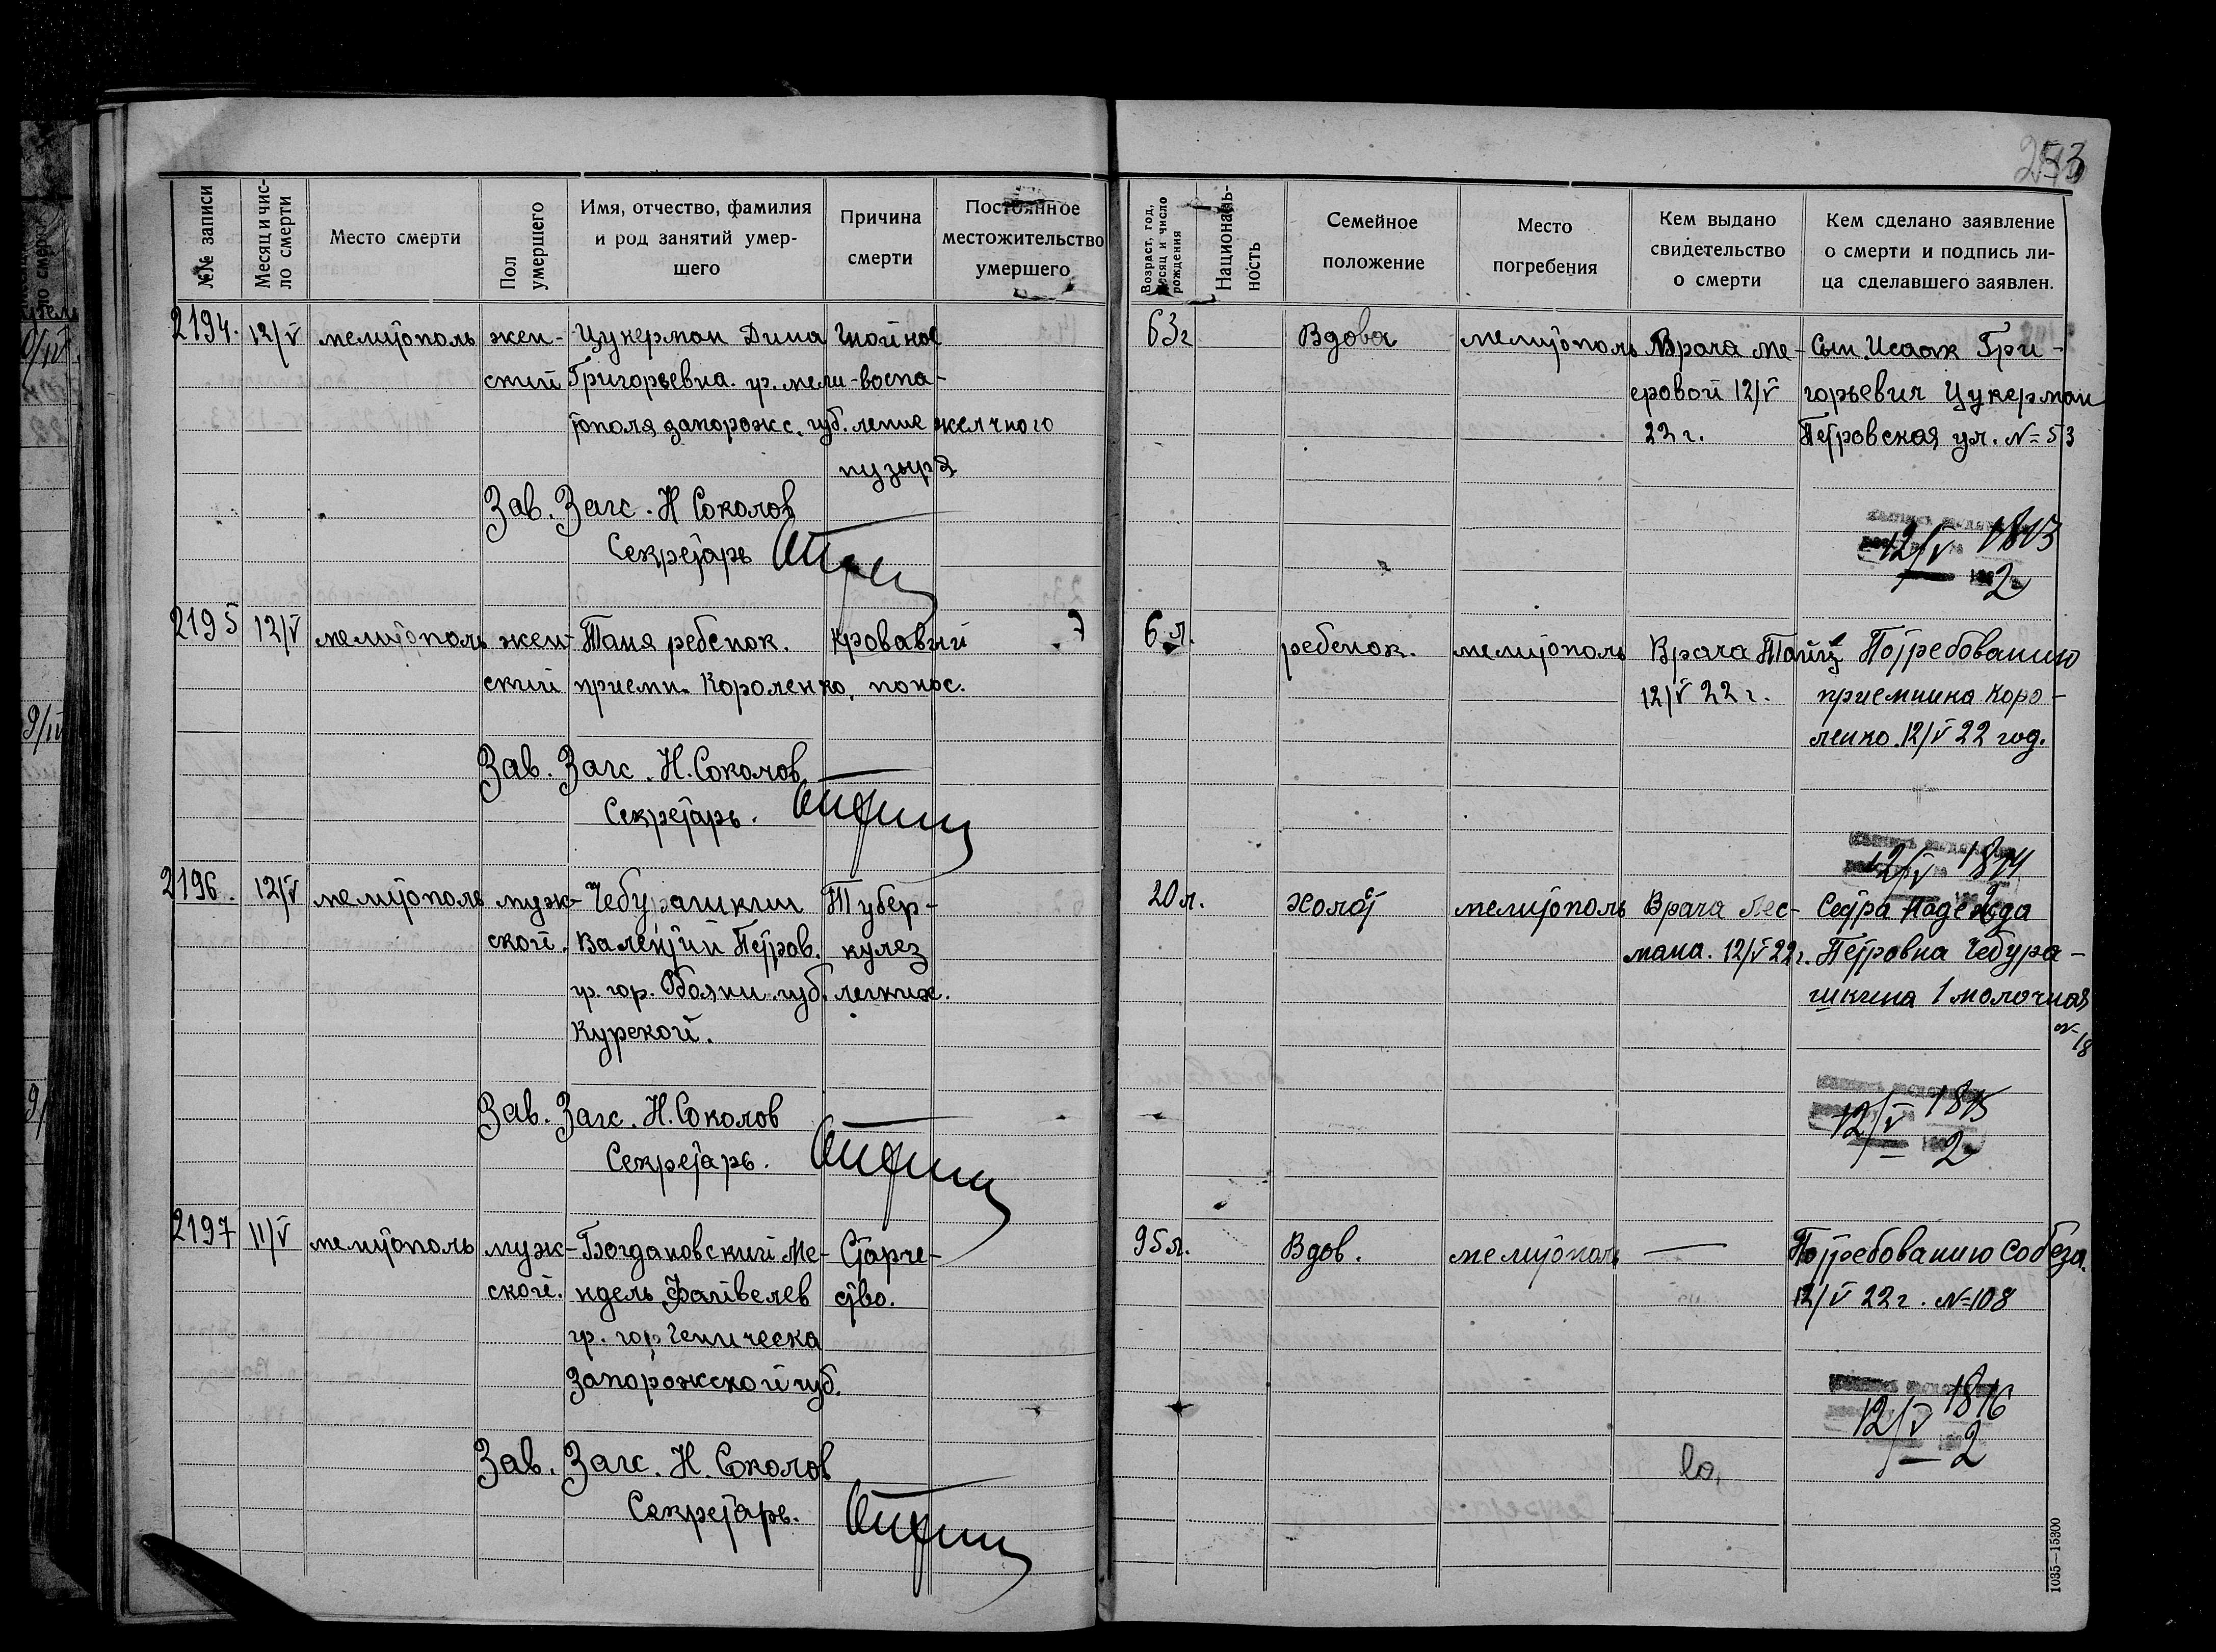 253
№№ записи
Месяц и чис-
ло смерти
Место смерти
Пол
умершего
Имя, отчество, фамилия
и род занятий умер-
шего
Причина
смерти
Постоянное
местожительство
умершего
Возраст, год,
месяц и число
рождения
Националь-
ность
Семейное
положение
Место
погребения
Кем выдано
свидетельство
о смерти
Кем сделано заявление
о смерти и подпись ли-
ца сделавшего заявлен.
2194.
12/V
мелитополь
жен-
ский
Цукерман Дина
Григорьевна. гр. мели-
тополя запорожс. губ.
Гнойное
воспа-
ление желчного
пузыря
63 г
Вдова
мелитополь
Врача Ме-
еровой 12/V
22 г.
Сын Исаак Гри-
горьевич Цукерман
Петровская ул. № 53
Зав. Загс. Н Соколов
Секретарь
12/V 1813
2
2195
12/V
мелитополь
жен-
ский
Таня ребенок.
приемн. Короленко.
Кровавый
понос.
6 л.
ребенок.
мелитополь
Врача
12/V 22 г.
По требованию
приемника Коро-
ленко. 12/V 22 год.
Зав. Загс. Н. Соколов
Секретарь.
12/V 1814
2196.
12/V
мелитополь
муж-
ской.
Чебурашкин
Валентин Петров.
гр. гор. Обояни губ.
Курской.
Тубер-
кулез
легких.
20 л.
холост
мелитополь
Врача Лес-
мана. 12/V 22 г.
Сестра Надежда
Петровна Чебура-
шкина 1 молочная
№ 18
Зав. Загс. Н. Соколов
Секретарь.
12/V 1815
2
2197
11/V
мелитополь
муж-
ской.
Богдановский Ме-
ндель Файвелев
гр. гор Геническа
Запорожской губ.
Старче-
ство.
95 л.
Вдов.
мелитополь
—
По требованию Собеза.
12/V 22 г. № 108
Зав. Загс. Н. Соколов
Секретарь.
12/V 1816
2
1035—15300